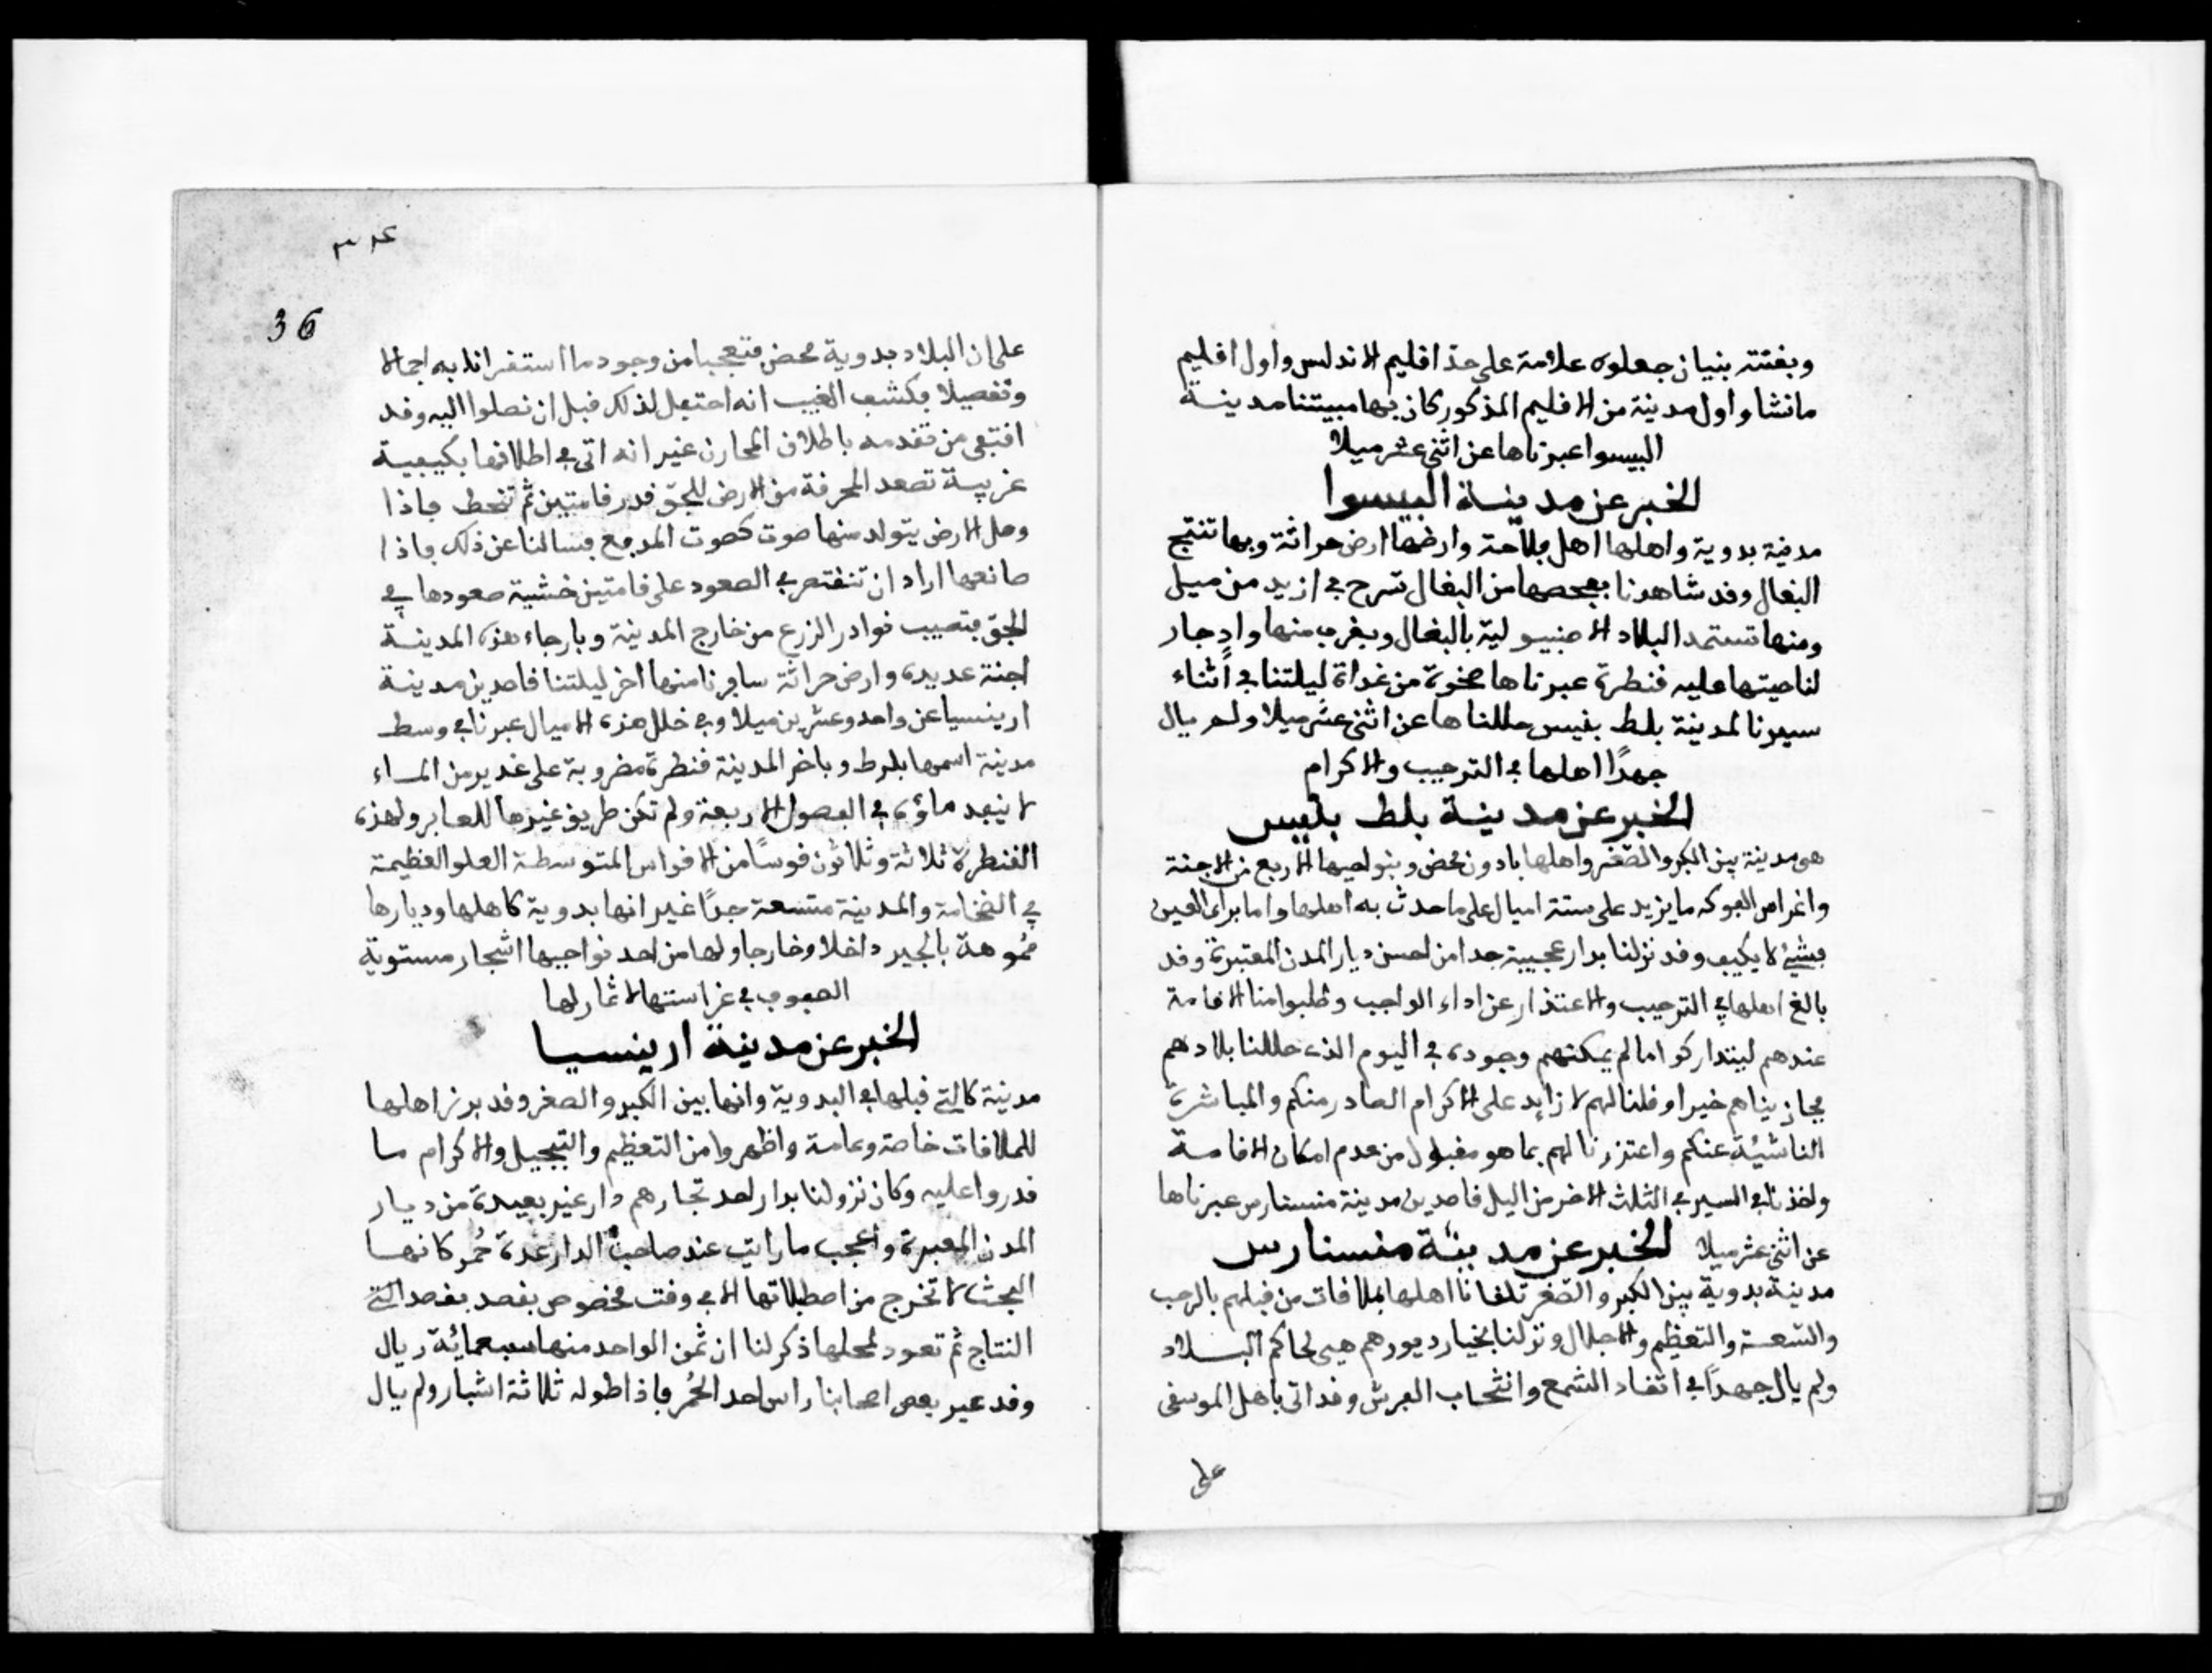 وبقنته بنيان جعلوه علامة على حد افليم الاندلس واول افليم
مانشا واول مدينة من الافليم المذكور كان بها مبيتنا مدينة
البيسوا عبرناها عن اثنى عشر ميلا
الخبر عن مدينة البيسوا
مدينة بدوية واهلها اهل فلاحة وارضها ارض حراثة وبها تنتج
البغال وفد شاهدنا بعحصها من البغال تسرح في ازيد من ميل
ومنها تستمد البلاد الاصبنيولية بالبغال وبفرب منها وادجار
لناحيتها عليه فنطرة عبرناها ضحوة من غداة ليلتنا في أثناء
سيرنا لمدينة بلط بنيس حللناها عن اثنى عشر ميلا ولم يال
جهدًا اهلها في الترحيب والاكرام
الخبر عن مدينة بلط بنيس
هى مدينة بين الكبر والصّغر واهلها بادون محض وبنواحيها الاربع من الاجنة
واغراس الفوكه ما يزيد على ستة اميال على ما حدث به اهلها واما براى العين
فشئ لا يكيف وفد نزلنا بدار عجيبة جدا من احسن ديار المدن المعتبرة وفد
بالغ اهلها في الترحيب والاعتذار عن اداء الواجب وطلبوا منا الافامة
عندهم ليتداركوا ما لم يمكنهم وجوده في اليوم الذى حللنا بلادهم
فجازيناهم خيرا وفلنا لهم لا زايد على الاكرام الصادر منكم والمباشرة
الناشئة عنكم واعتزرنا لهم بما هو مفبول من عدم امكان الافامة
واخذنا في السير في الثلث الاخر من اليل فاصدين مدينة منسنارس عبرناها
عن اثنى عشر ميلا الخبر عن مدينة منسنارس
مدينة بدوية بين الكبر والصّغر تلفانا اهلها بملافات من فبلهم بالرحب
والسّعة والتعظيم والاجلال ونزلنا بخيار ديورهم هى لحاكم البلاد
ولم يال جهدًا في اتفاد الشمع وانتخاب الفرش وفد اتى باهل الموسفى
على
36
على ان البلاد بدوية محض فتعجبنا من وجود ما استغربناه به اجمالا
وتفصيلا فكشف الغيب انه احتفل لذلك فبل ان نصلوا اليه وفد
افتفى من تفدمه باطلاف المحارف غير انه اتى في اطلافها بكيفية
غريبة تصعد المحرفة من الارض للجوّ فدر فامتين ثم تنحط فاذا
وصل الارض يتولد منها صوت كصوت المدفع فسالنا عن ذلك فاذا
صانعها اراد ان تنفتصر في الصعود على فامتين خشية صعودها في
الجوّ فتصيب نوادر الزرع من خارج المدينة وبارجاء هذه المدينة
اجنة عديدة وارض حراثة سافرنا منها اخر ليلتنا فاصدين مدينة
ارينسيا عن واحد وعشرين ميلا وفي خلل هذه الاميال عبرنا في وسط
مدينة اسمها بلرط وباخر المدينة فنطرة مضروبة على غدير من الماء
لا ينفد ماؤه في الفصول الاربعة ولم تكن طريق غيرها للعابر ولهذه
الفنطرة ثلاثة وثلاثون فوسًا من الافواس المتوسطة العلو العظيمة
في الضخامة والمدينة متسعة جدًا غير انها بدوية كاهلها وديارها
مُموهة بالجير داخلا وخارجا ولها من احد نواحيها اشجار مستوية
الصفوف في غراستها لا ثمار لها
الخبر عن مدينة ارينسيا
مدينة كالتى فبلها في البدوية وانها بين الكبر والصغر وفد برز اهلها
للملافات خاصة وعامة واظهروا من التعظيم والتبجيل والاكرام ما
فدروا عليه وكان نزولنا بدار احد تجارهم دار غير بعيدة من ديار
المدن المعبرة واعجب ما رايت عند صاحب الدار عدة حُمر كانها
البخت لا تخرج من اصطبلاتها الا في وفت مخصوص بفصد
النتاج ثم تعود لمحلها ذكر لنا ان ثمن الواحد منها سبعمائة ريال
وفد عبر بعض اصحابنا راس احد الحُمر فاذا طوله ثلاثة اشبار ولم يال